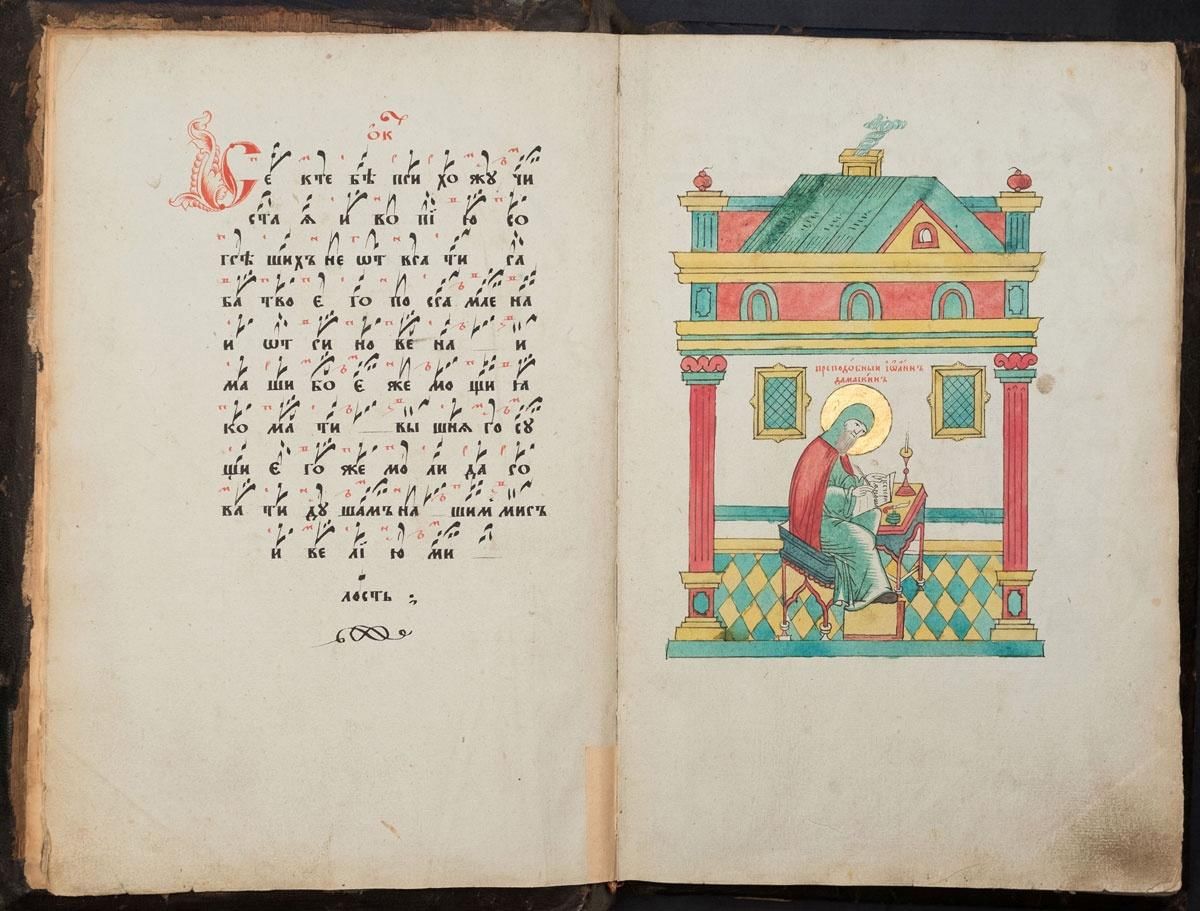 Ѻк
Се к те бѣ при хо жу чи
ста ѧ и во пі ю со
грѣ шихъ не ѿт вра ти ра
ба тво є го по сра мле на
и ѿт ри но ве на и
ма ши бо є же мо щи ꙗ
ко ма ти вы шнѧ го су
щи є го же мо ли да ро
ва ти ду шамъ на шим миръ
и ве лі ю ми
лость
преподобныи іѡаннъ
дамаскинъ